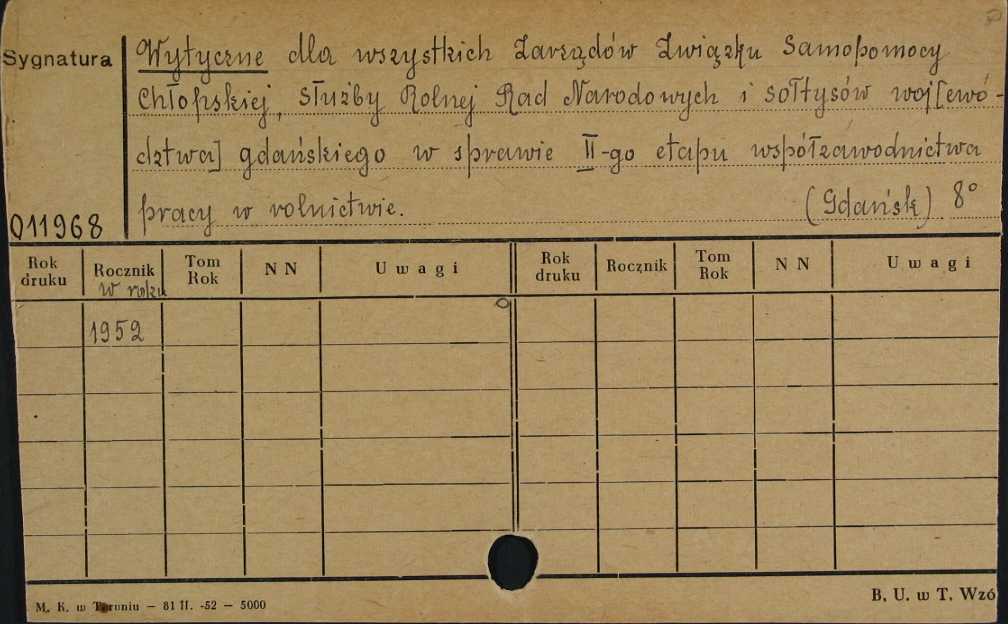 Sygnatura
Wytyczne dla wszystkich Zarządów Związku Samopomocy
Chłopskiej, Służby Rolnej Rad Narodowych i sołtysów woj[ewó-
dztwa] gdańskiego w sprawie II-go etapu współzawodnictwa
pracy w rolnictwie. (Gdańsk) 8°
011968
Rok druku Rocznik w roku Tom Rok NN Uwagi Rok druku Rocznik Tom Rok NN Uwagi
1952
M. K. w Toruniu — 81 II. -52 — 5000
B. U. w T. Wzó